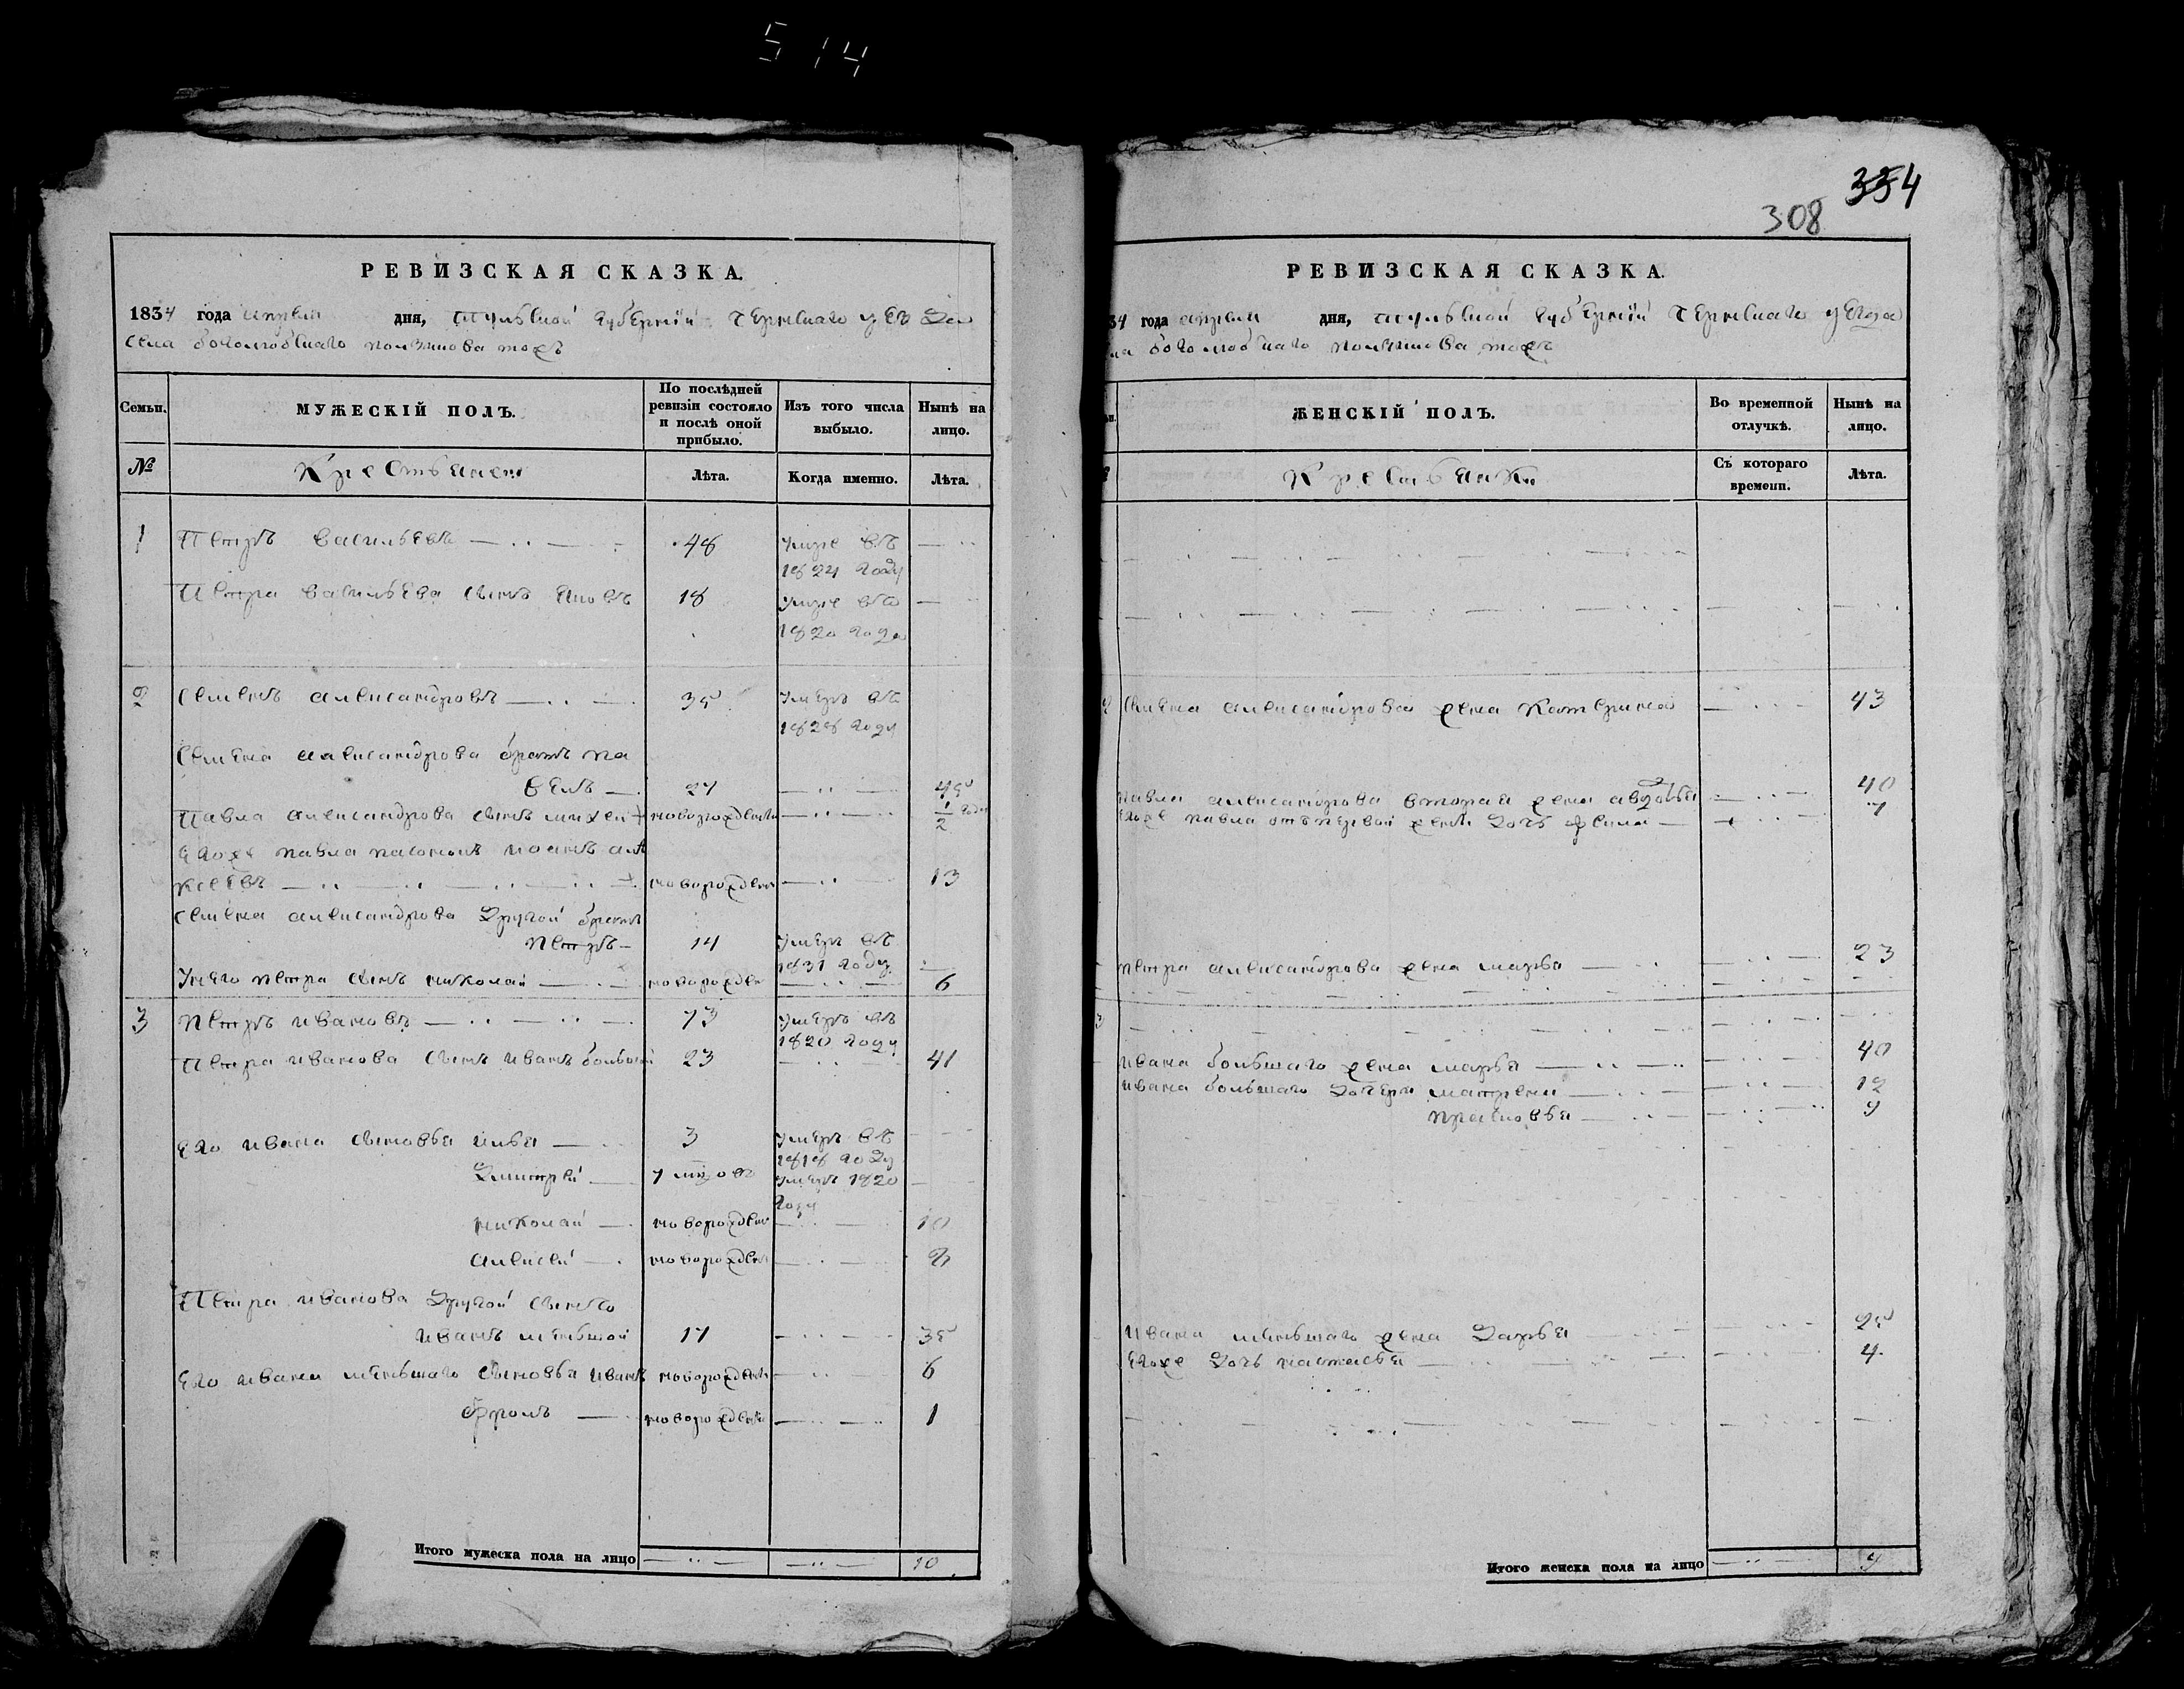 514
РЕВИЗСКАЯ СКАЗКА.
1834 года апреля дня, тульской губернии чернскаго уезда
села боголюбскаго
Семьи. МУЖЕСКІЙ ПОЛЪ. По послѣдней ревизіи состояло и послѣ оной прибыло. Изъ того числа выбыло. Нынѣ на лицо.
№ Крестьяне Лѣта. Когда именно. Лѣта.
1 Петръ васильевъ 48 умре въ
1824 году
Петра васильева сынъ яковъ 18 умре въ
1820 года
2 семенъ александровъ 35 умеръ въ
1828 году
семена александрова братъ па
велъ 27 45
Павла александрова сынъ михей новорожденъ 1/2 года
егоже павла пасонокъ иванъ але
ксеевъ новорожден 13
семена александрова Другой братъ
петръ 14 умеръ въ
1831 году
у него петра сынъ николай новорожден 6
3 петръ ивановъ 73 умеръ въ
1820 году
петра иванова сынъ иванъ большой 23 41
его ивана сыновья илья 3 умеръ въ
1818 году
Дмитрей 7 умеръ 1820
году
николай новорожден 10
алексей новорожден 8
Петра иванова Другой сынъ
иванъ меньшой 17 35
его ивана меньшаго сыновья иванъ новорожденъ 6
новорожденъ 1
Итого мужеска пола на лицо 10
354
308
РЕВИЗСКАЯ СКАЗКА.
34 года апреля дня, тульской губернии чернскаго уезда
ла боголюбскаго
ЖЕНСКІЙ ПОЛЪ. Во временной отлучкѣ. Нынѣ на лицо.
Крестьянки Съ котораго времени. Лѣта.
2 семена александрова жена катерина 43
павла александрова вторая жена авдотья 40
егоже павла отъ первой жены Дочь фекла 7
петра александрова жена марья 23
3
ивана большаго жена марья 40
ивана большаго Дочери матрена 12
прасковья 9
ивана меньшаго жена Дарья 25
егоже Дочь настасья 4
Итого женска пола на лицо 9